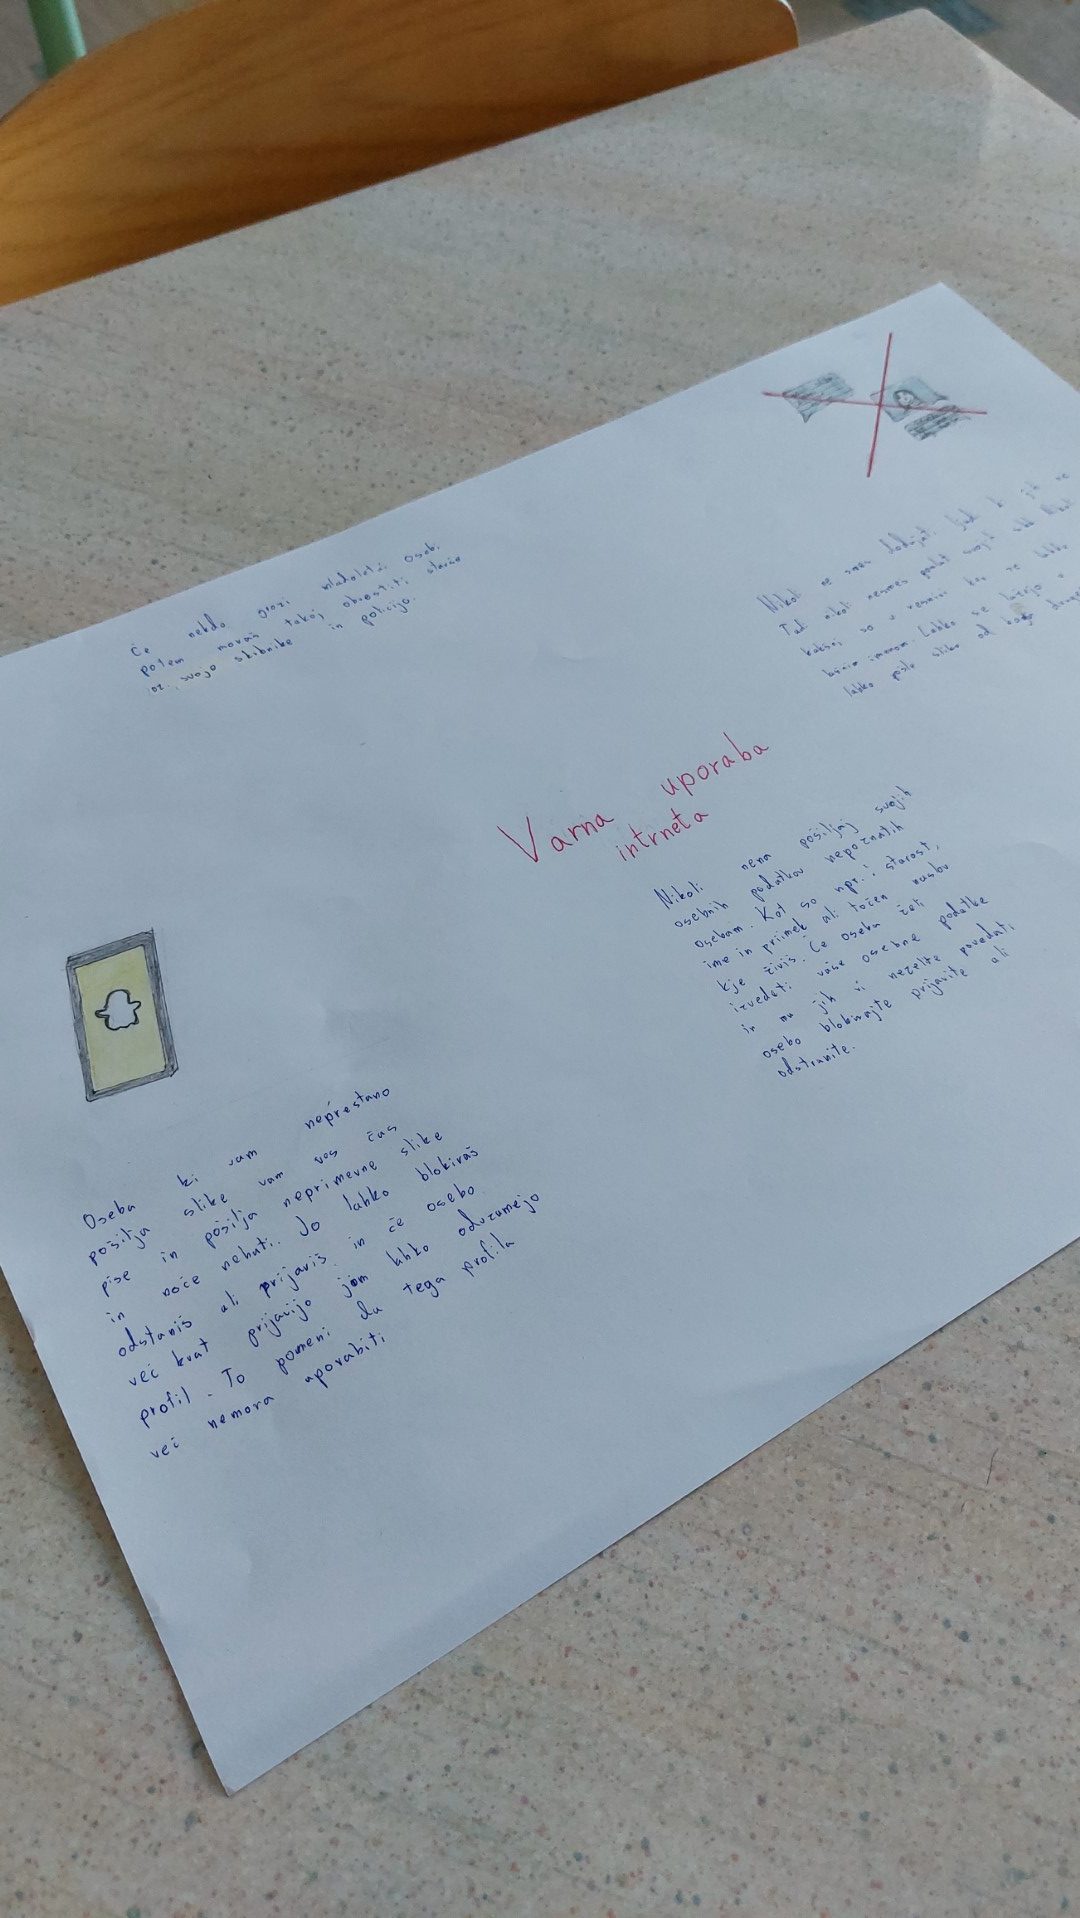 Če nekdo grozi mladoletni osebi
potem moraš takoj obvestiti starše
oz. svoje skrbnike in policijo.
Nikoli se
Tudi nikoli nesmeš svojih slik
kakšni so v resnici
imenom. Lahko se lažejo
lahko pošle slike od koga drugega
Varna uporaba
intrneta
Nikoli nena pošiljaj svojih
osebnih podatkov nepoznatih
osebam. Kot so npr.: starost,
ime in priimek ali točen naslov
kje živiš. Če oseba želi
izvedeti vaše osebne podatke
in mu jih vi neželte povedati
osebo blokirajte prijavite ali
odstranite.
Oseba ki vam neprestano
pošilja slike vam vos čas
piše in pošilja neprimevne slike
in noče nehati. Jo lahko blokiraš
odstaniš ali prijaviš in če osebo
več krat prijavijo jim lahko odvzamejo
profil. To pomeni da tega profila
več nemora uporabiti